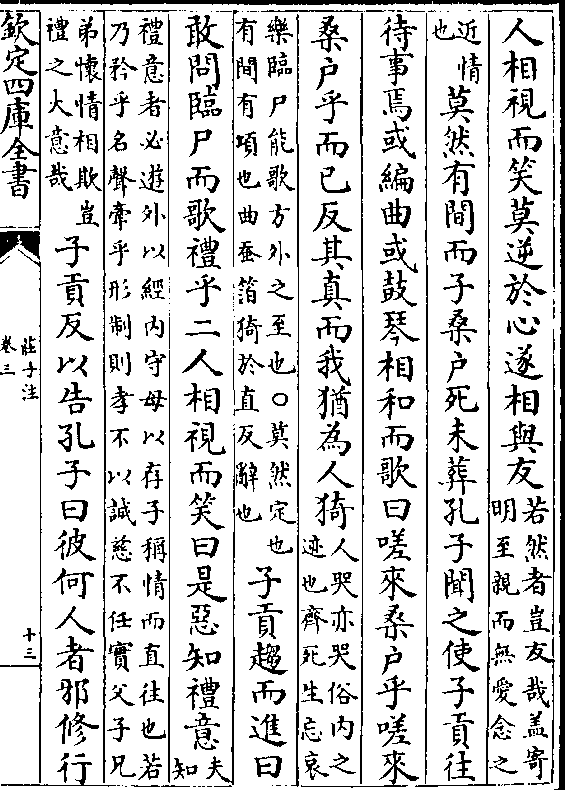 人相視而笑莫逆於心遂相與友若然者豈友哉盖寄明至親而無愛念之
近情也莫然有間而子桑户死未葬孔子聞之使子貢往
待事焉或編曲或鼓琴相和而歌曰嗟來桑户乎嗟來
桑户乎而已反其真而我猶為人猗人哭亦哭俗内之迹也齊死生忘哀
樂臨尸能歌方外之至也○莫然定也有間有項也曲蚕箔猗於直反辭也子貢趨而進曰
敢問臨尸而歌禮乎二人相視而笑曰是惡知禮意夫知
禮意者必遊外以經内守母以存子稱情而直往也若乃矜乎名聲牽乎形制則孝不以誠慈不任實父子兄
弟懷情相欺豈禮之大意哉子貢反以告孔子曰彼何人者邪修行
欽定四庫全書
莊子注
卷三
十三